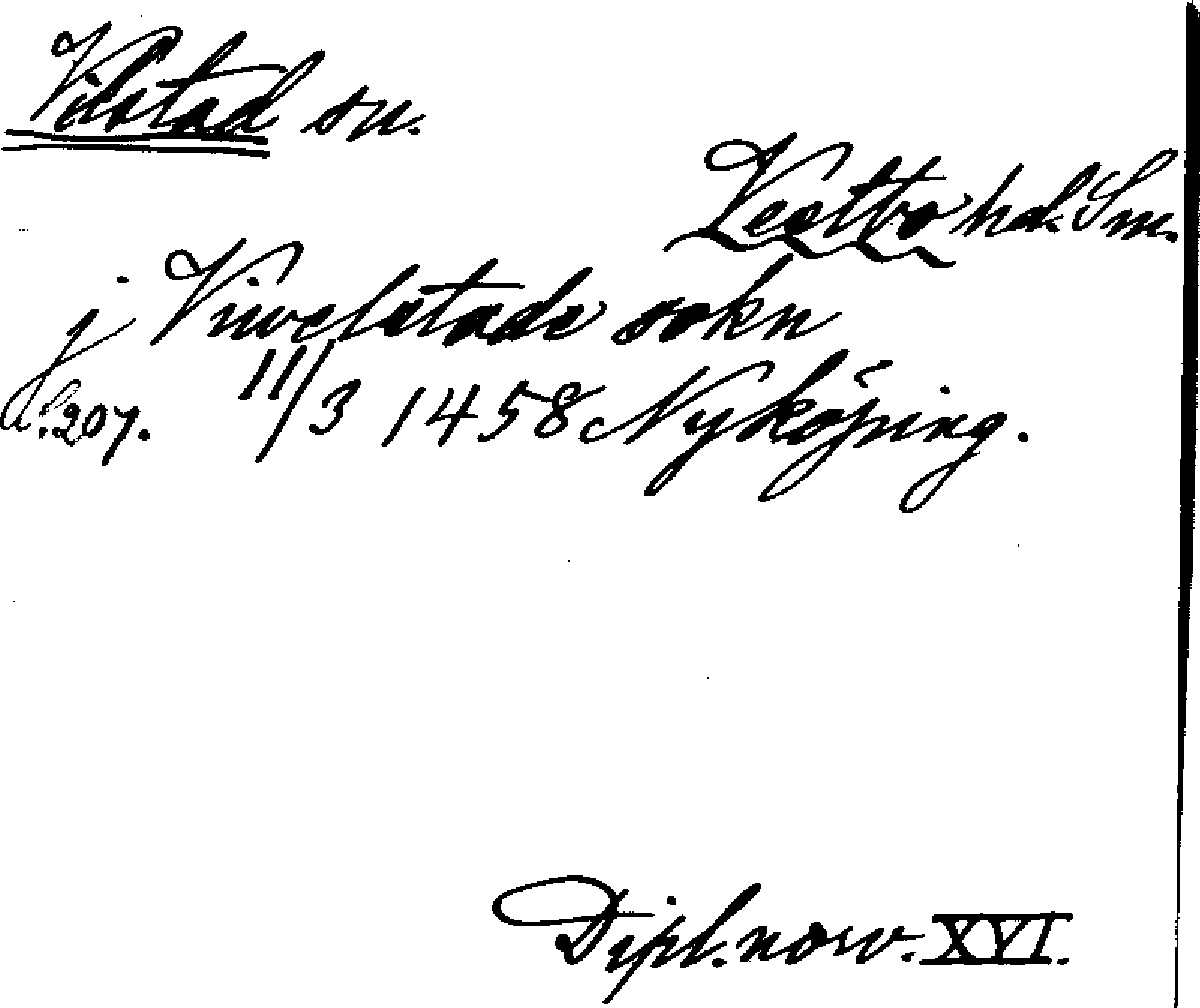 Vilstad sn.
Vestbo hd. Sm.
j Viwelstade sokn
al. 207. 11/3 1458 Nyköping.
Dipl. norv. XVI.